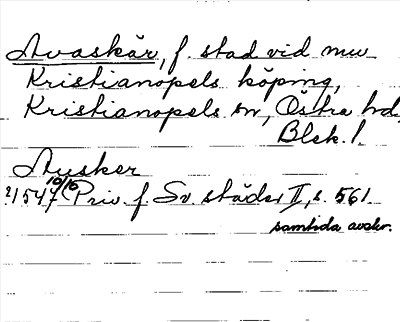 Avaskär, f. stad vid nuv.
Kristianopels köping,
Kristianopels sn, Östra hd,
Blek. l.
Ausker
21547 10/10 Priv. f. Sv. städer II, s. 561.
samtida avskr.